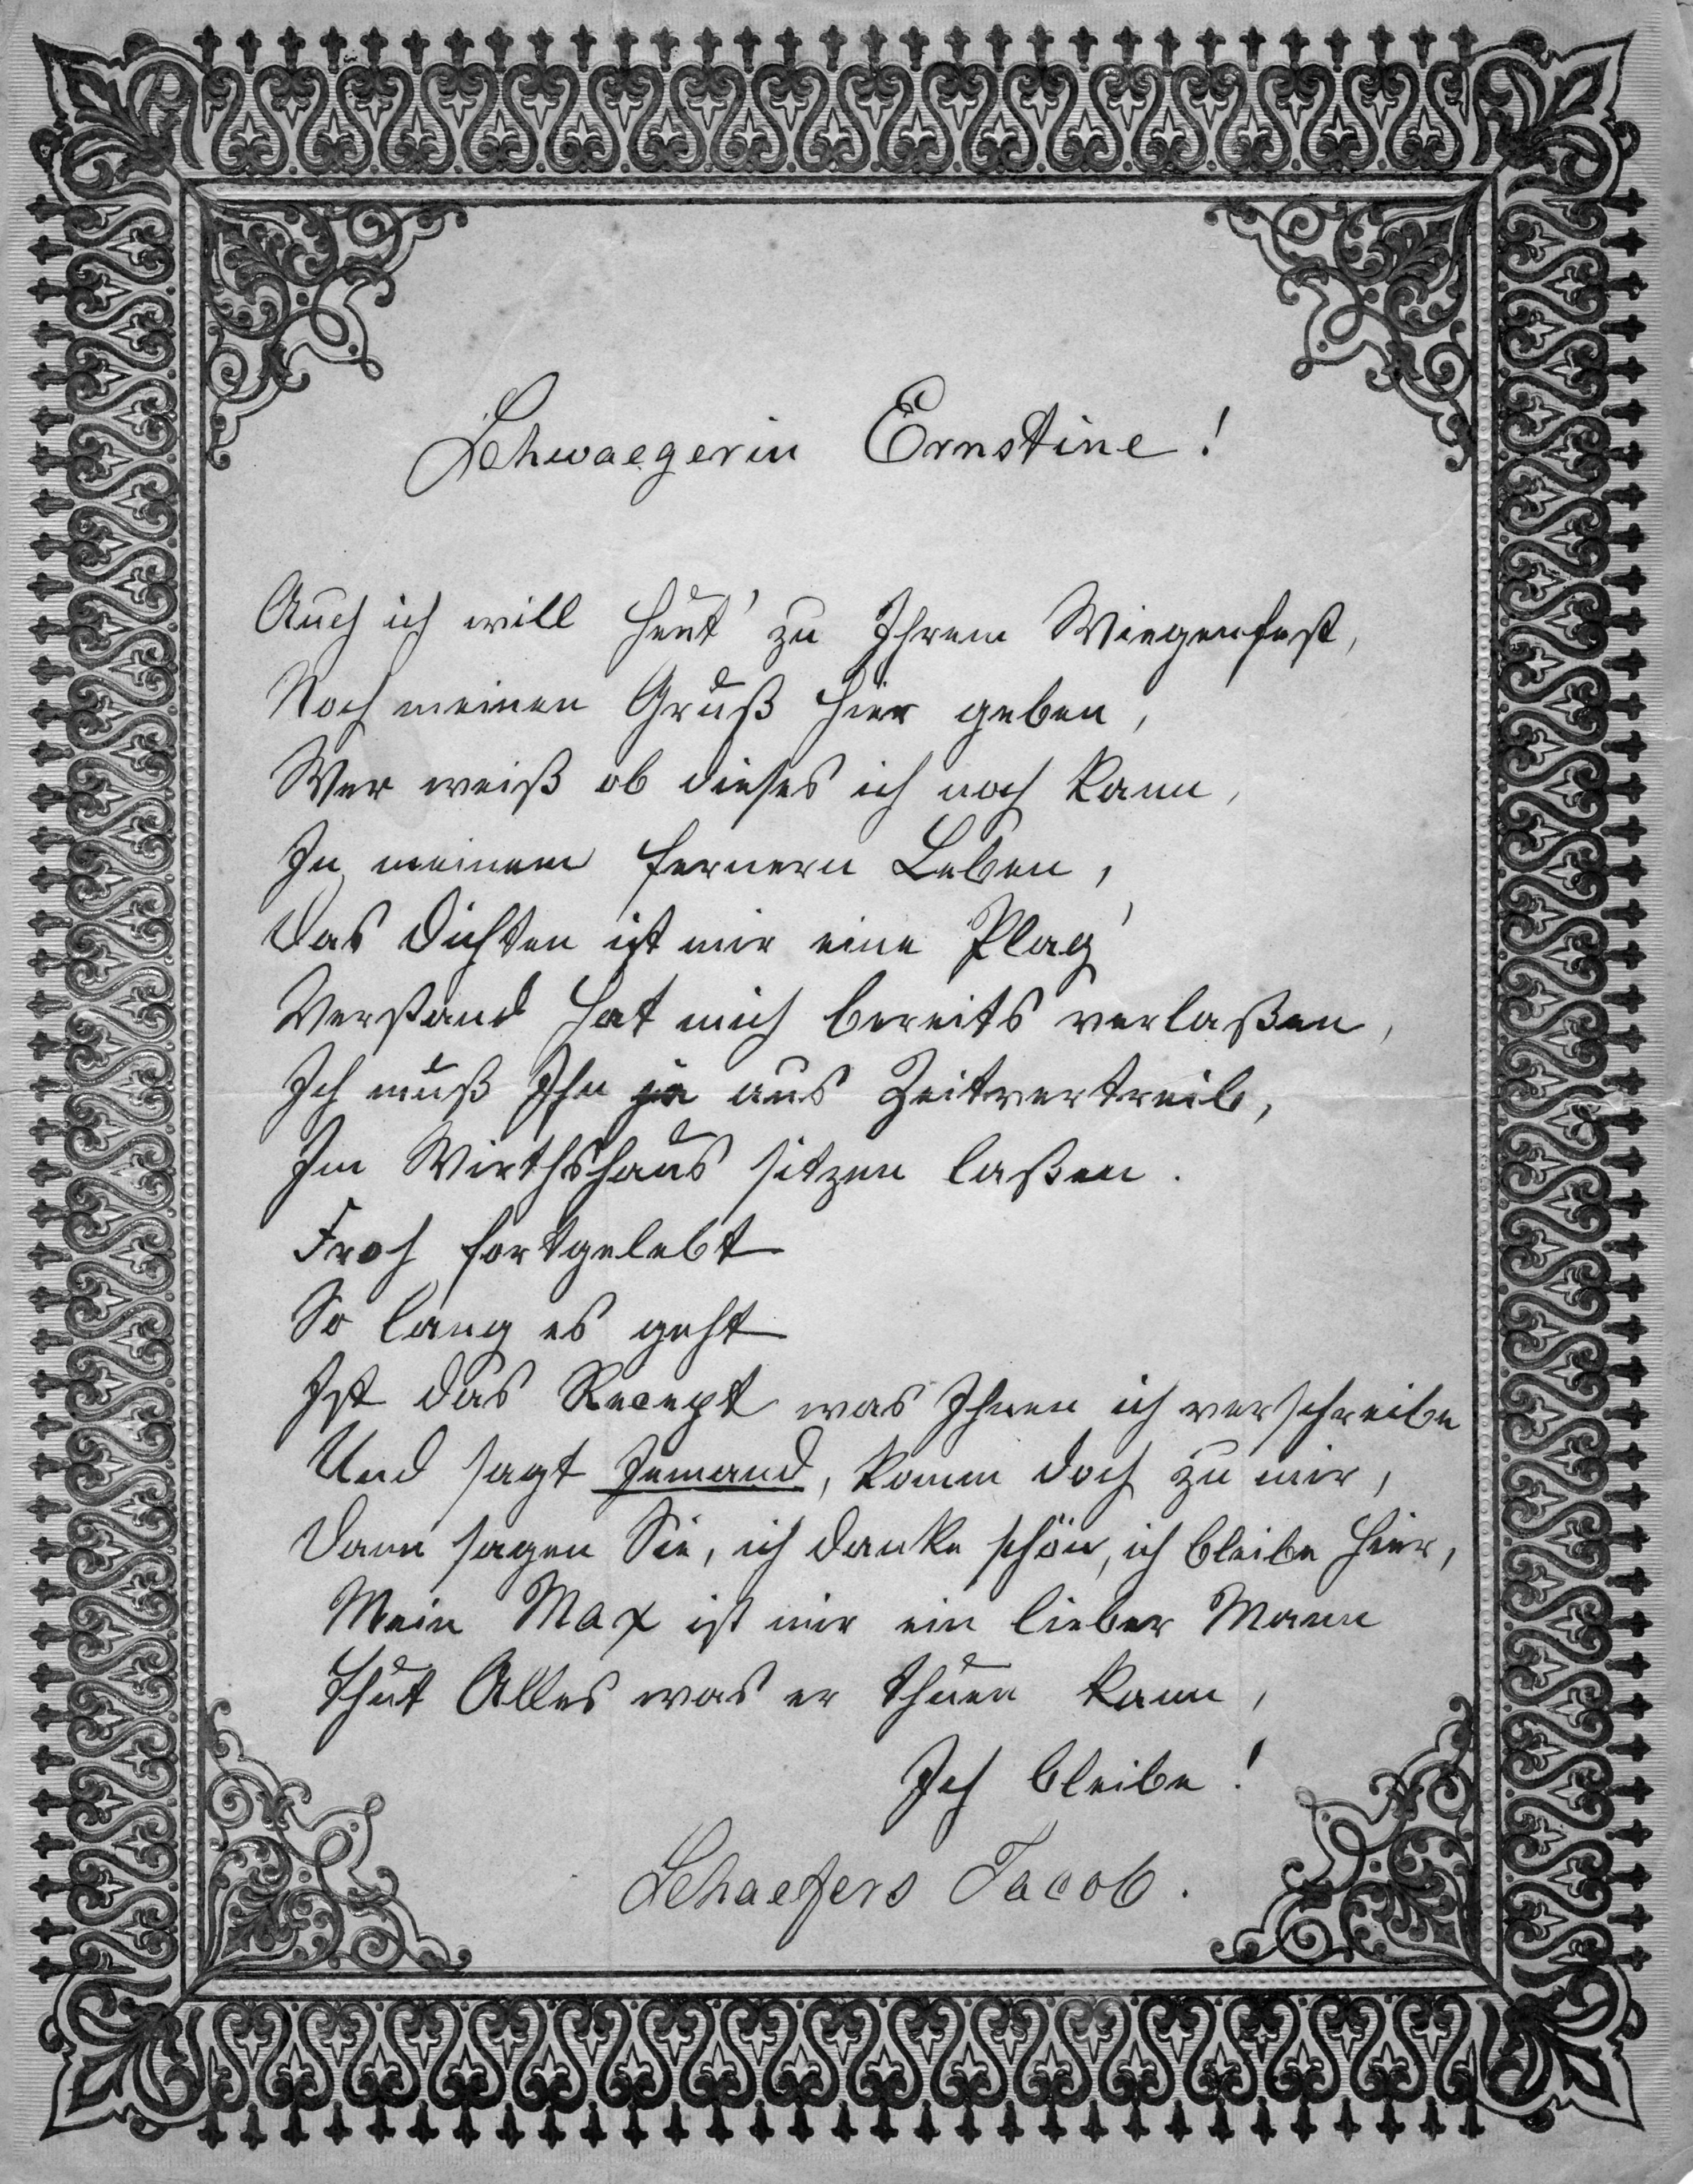 Schwaegerin Ernstine!
Auch ich will heut' zu Ihrem Wiegenfest,
Noch meinen Gruß hier geben,
Wer weiß ob dieses ich noch kann,
In meinem fernern Leben,
Das Dichten ist mir eine Plag'
Verstand hat mich bereits verlaßen,
Ich muß Ihn ja aus Zeitvertreib,
Im Wirthshaus sitzen laßen.
Froh fortgelebt
So lang es geht
Ist das Recept was Ihnen ich verschreibe
Und sagt Jemand, komm doch zu mir,
Dann sagen Sie, ich danke schön, ich bleibe hier,
Mein Max ist mir ein lieber Mann
Thut Alles was er thuen kann,
Ich bleibe!
Schaefers Jacob.